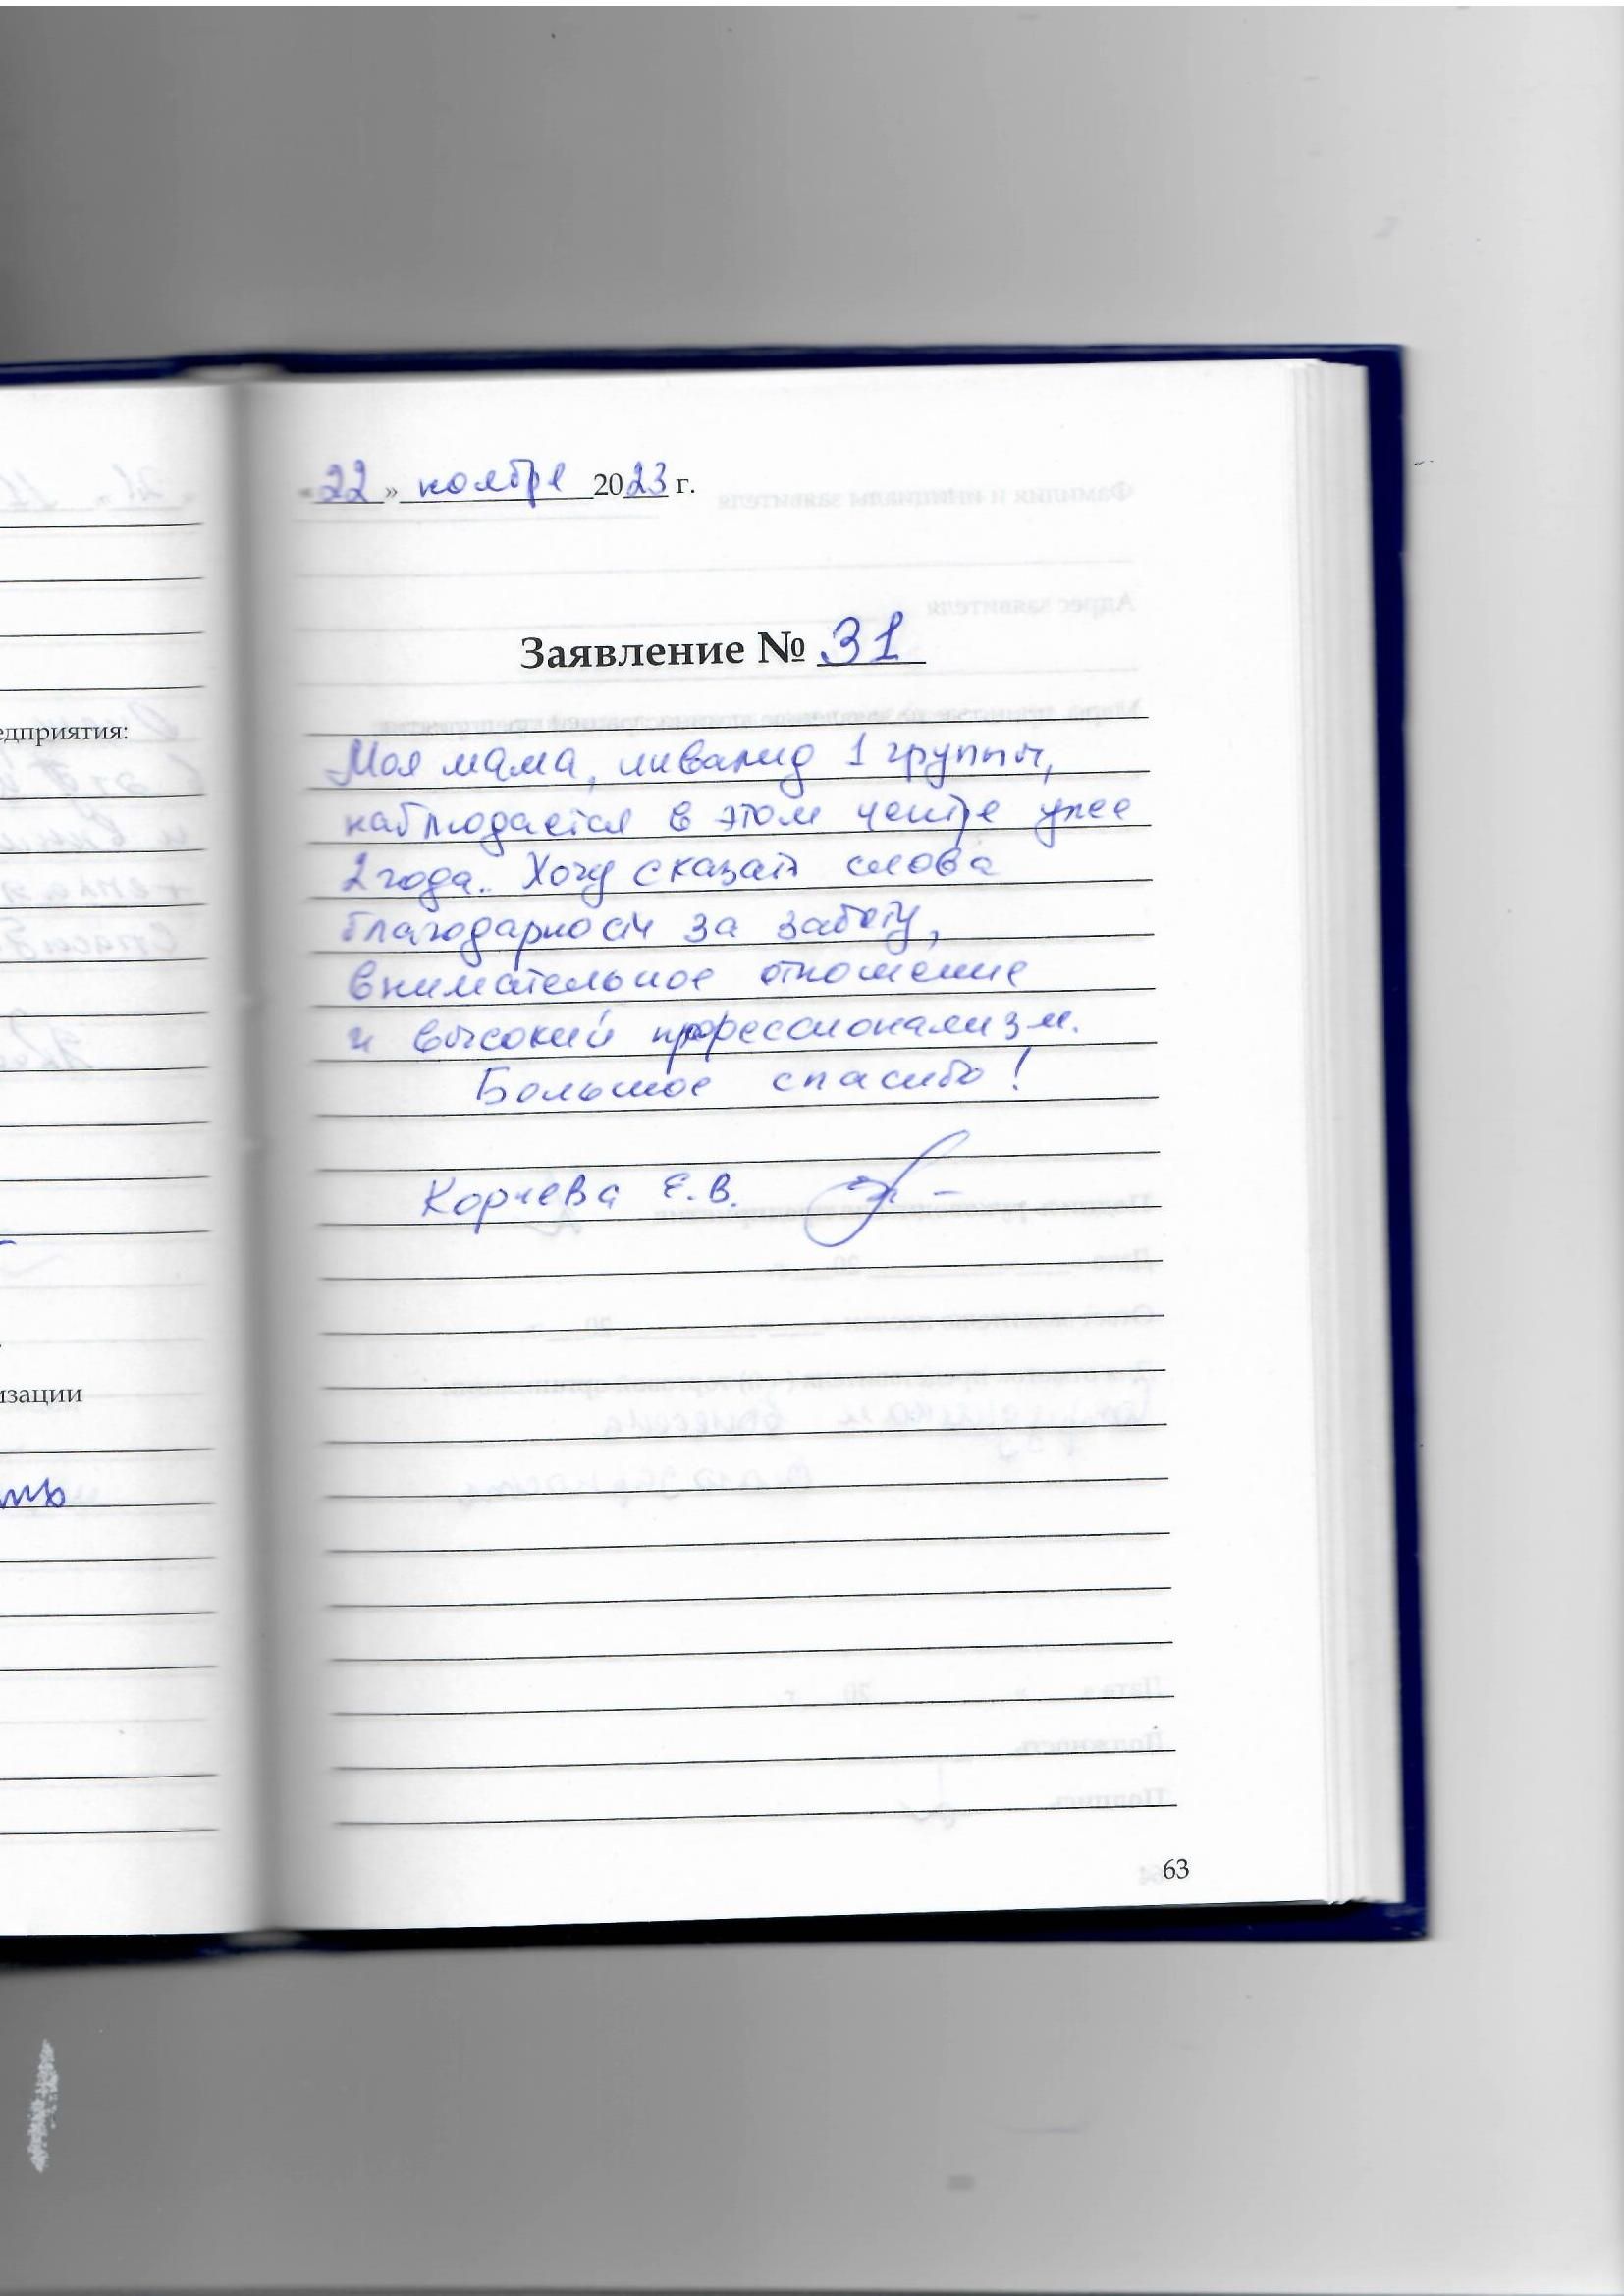 «22» ноября 2023 г.
Заявление № 31
едприятия:
Моя мама, инвалид 1 группы,
наблюдается в этом центре уже
2 года. Хочу сказать слова
благодарности за заботу,
внимательное отношение
и высокий профессионализм.
Большое спасибо!
Корнева Е.В.
изации
63